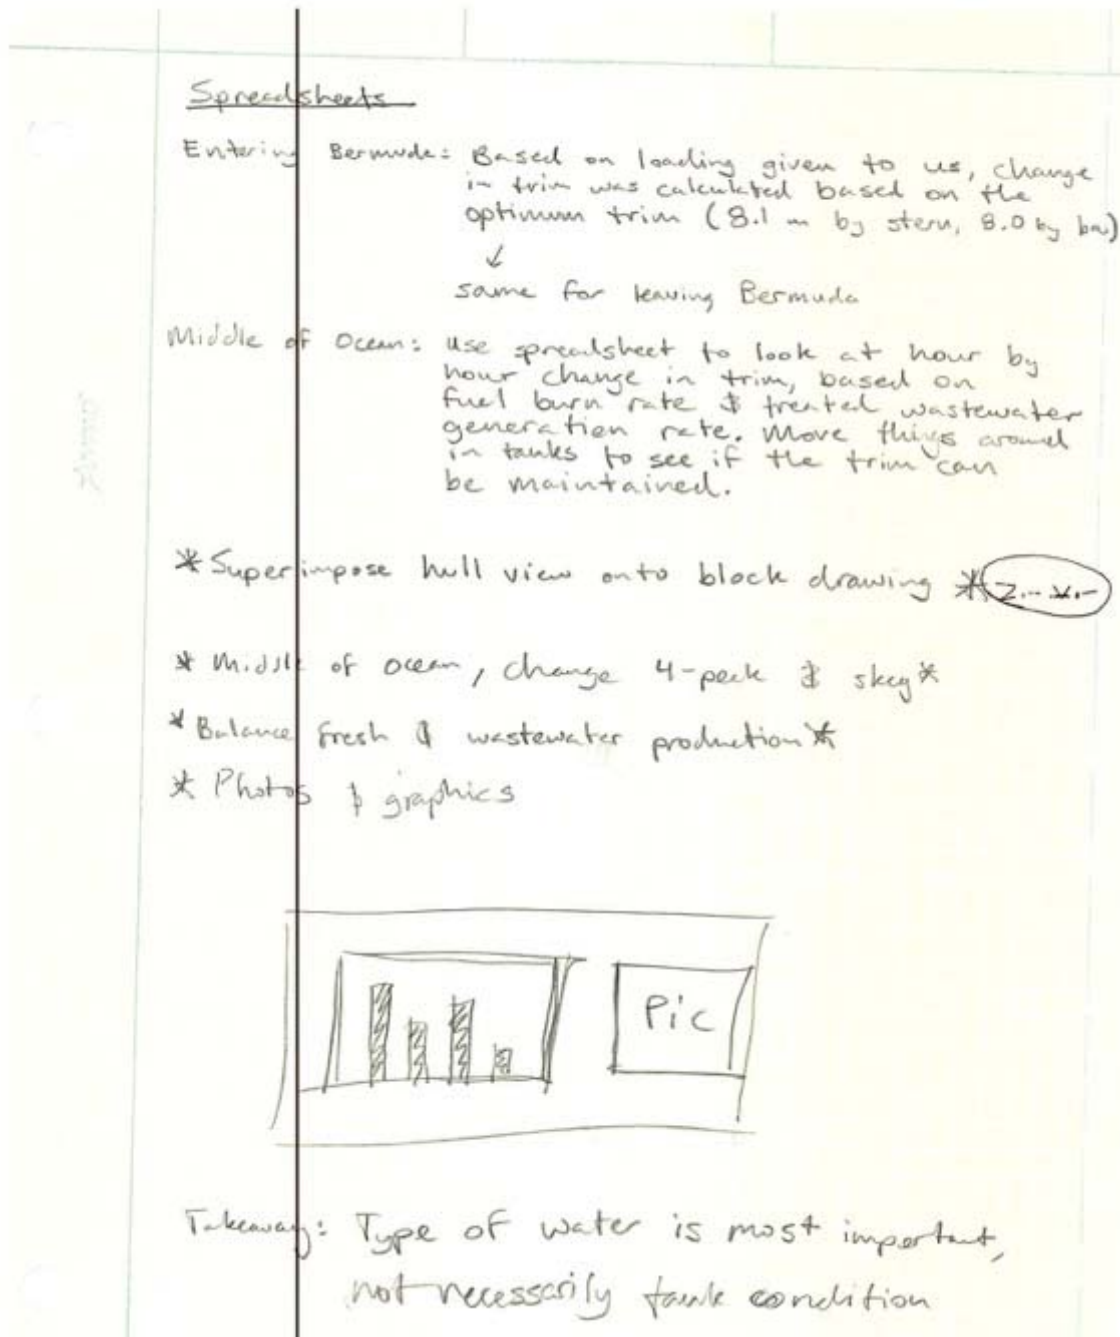 Spreadsheets
Entering Bermuda: Based on loading given to us, change
in trim was calculated based on the
optimum trim (8.1 m by stern, 8.0 by bow)
↓
same for leaving Bermuda
Middle of Ocean: Use spreadsheet to look at hour by
hour change in trim, based on
fuel burn rate & treated wastewater
generation rate. Move things around
in tanks to see if the trim can
be maintained.
* Superimpose hull view onto block drawing *
* Middle of ocean, change 4-peak & skeg *
* Balance fresh & wastewater production *
* Photos & graphics
Pic
Takeaway: Type of water is most important,
not necessarily tank condition